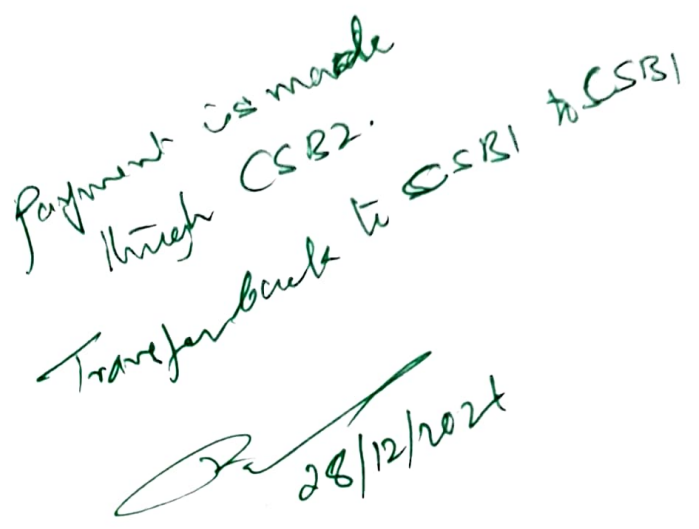 Payment is made
through CSB2.
Transfer back to CSB1 to CSB1
28/12/2021